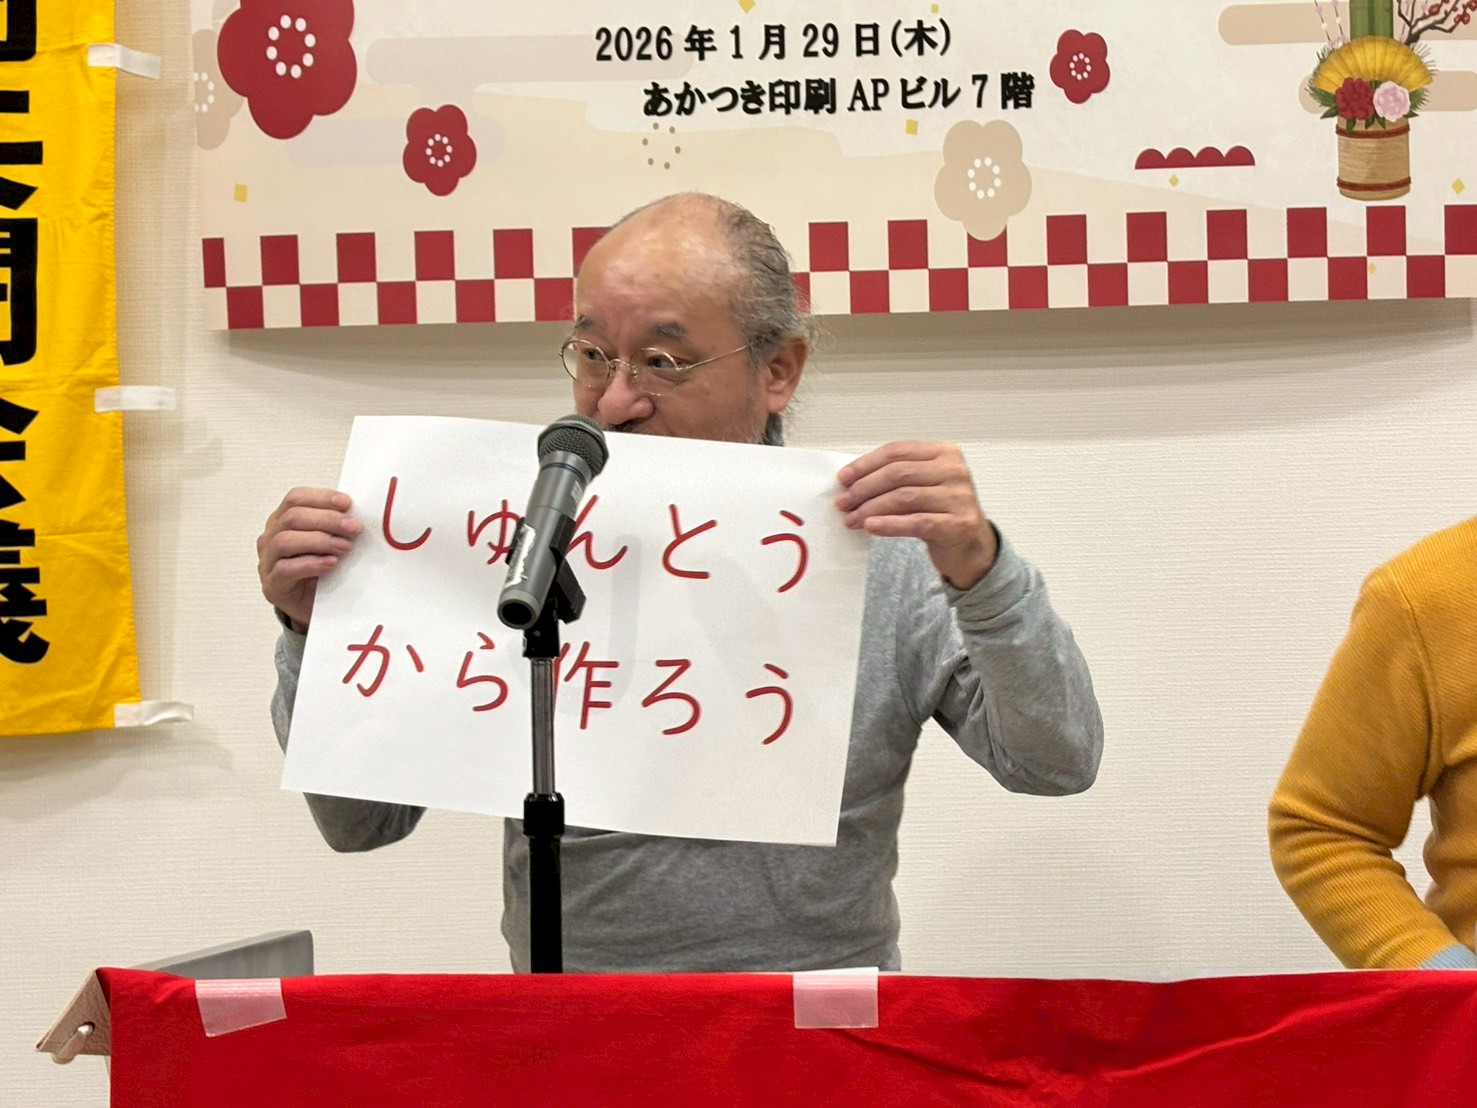 2026年1月29日(木)
あかつき印刷APビル7階
しゅんとう
から作ろう